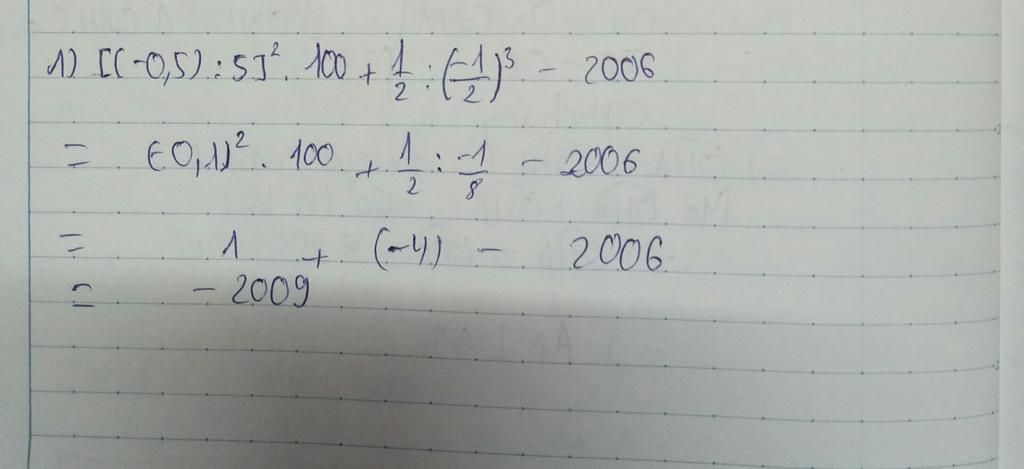 1) [(-0,5) : 5]² . 100 + 1/2 : (-1/2)³ - 2006
= (-0,1)² . 100 + 1/2 : -1/8 - 2006
= 1 + (-4) - 2006
= - 2009